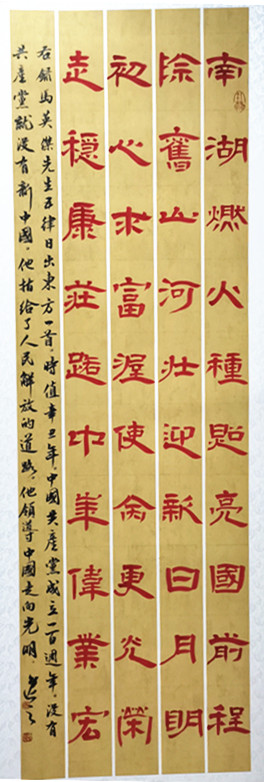 南湖燃火種照亮國前程
除舊山河壯迎新日月明
初心求富渥使命更光榮
走穩康莊路中華偉業宏
右錄馬英傑先生五律日出東方一首。時值辛丑年,中國共產黨成立一百週年。沒有
共產黨就沒有新中國。他指給了人民解放的道路,他領導中國走向光明。